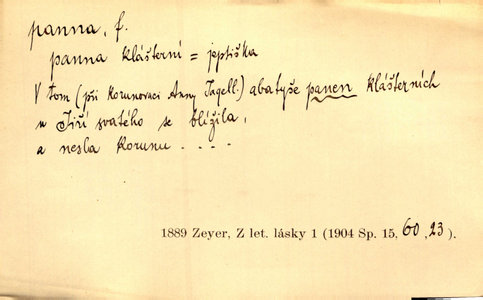 panna, f.
panna klášterní = jeptiška
V tom (při korunovaci Anny Jagell.) abatyše panen klášterních
u Jiří svatého se blížila,
a nesla korunu . . . .
1889 Zeyer, Z let. lásky 1 (1904 Sp. 15, 60, 23).